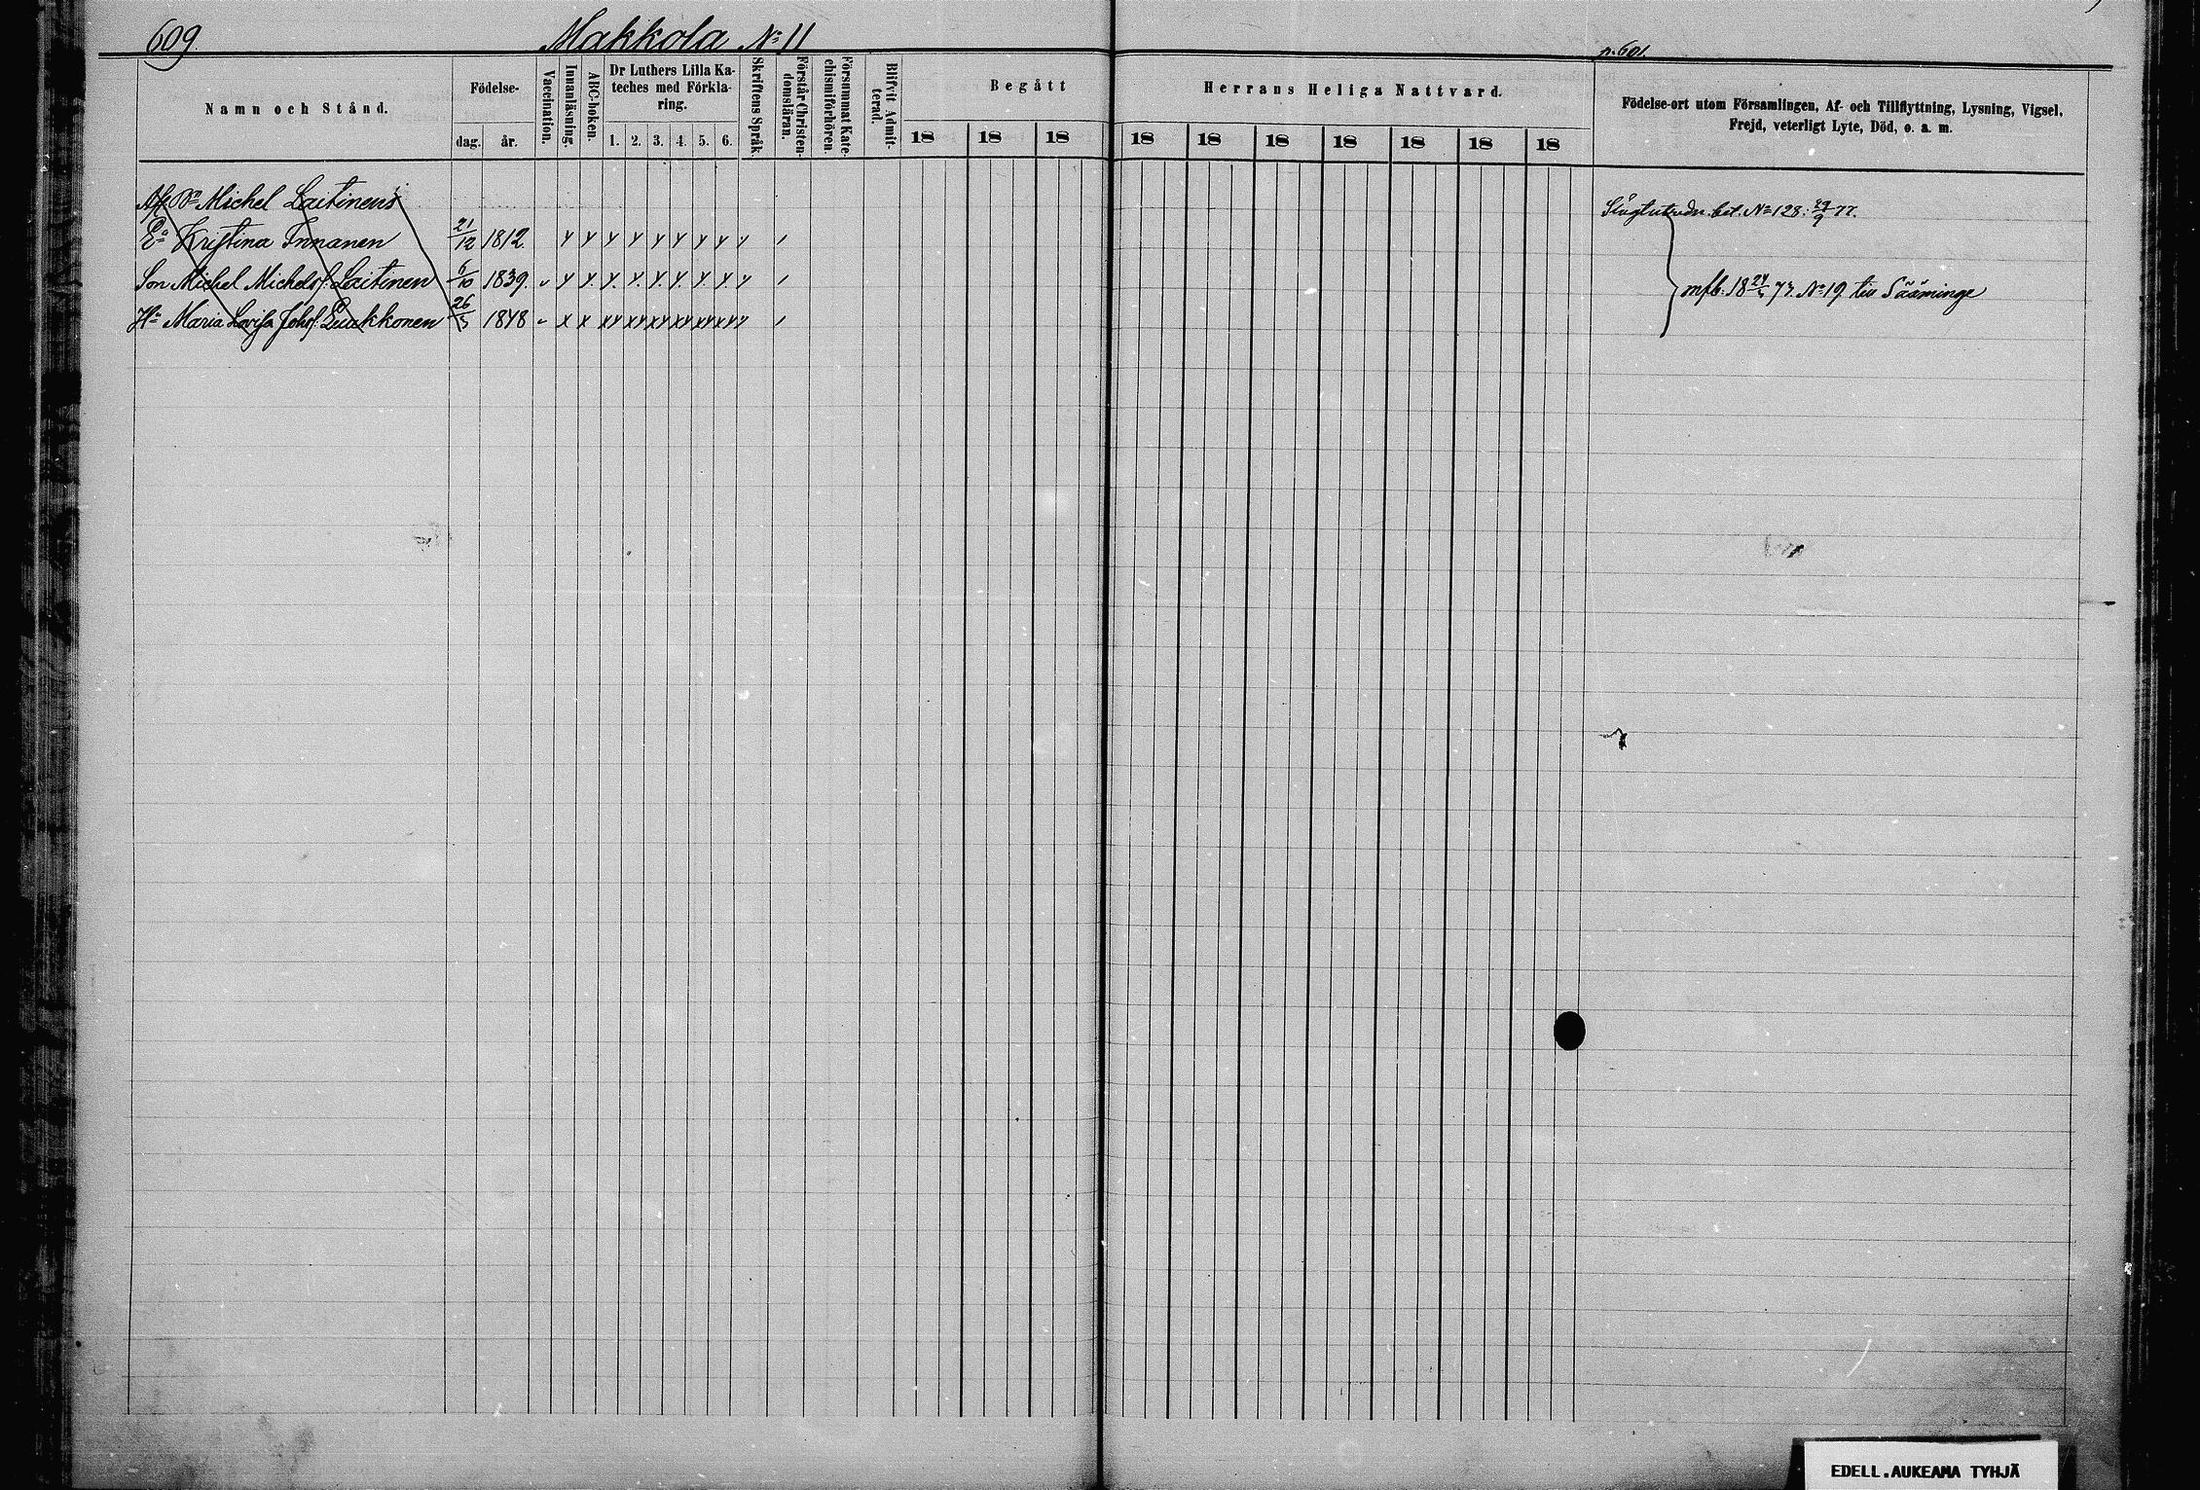 609. Makkola No 11
p. 601.
Namn och Stånd.
Födelse-
dag. år.
Vaccination.
Innanläsning.
ABC-boken.
Dr Luthers Lilla Ka-
teches med Förkla-
ring.
1. 2. 3. 4. 5. 6.
Skriftens Språk.
Förstår Christen-
domsläran.
Försummat Kate-
chismiförhören.
Blifvit Admit-
terad.
Begått Herrans Heliga Nattvard.
18 18 18 18 18 18 18 18 18 18
Födelse-ort utom Församlingen, Af- och Tillflyttning, Lysning, Vigsel,
Frejd, veterligt Lyte, Död, o. a. m.
Michel Laitinens
bet. No 128: 29/9 77.
Ea Kristina Innanen 21/12 1812
Son Michel Michelsf. Laitinen 6/10 1839.
mfb: 18 24/5 73. No 19. till Sääminge
Hu Maria Lovisa Johsf. Puukkonen 26/5 1848
EDELL.AUKEAMA TYHJÄ